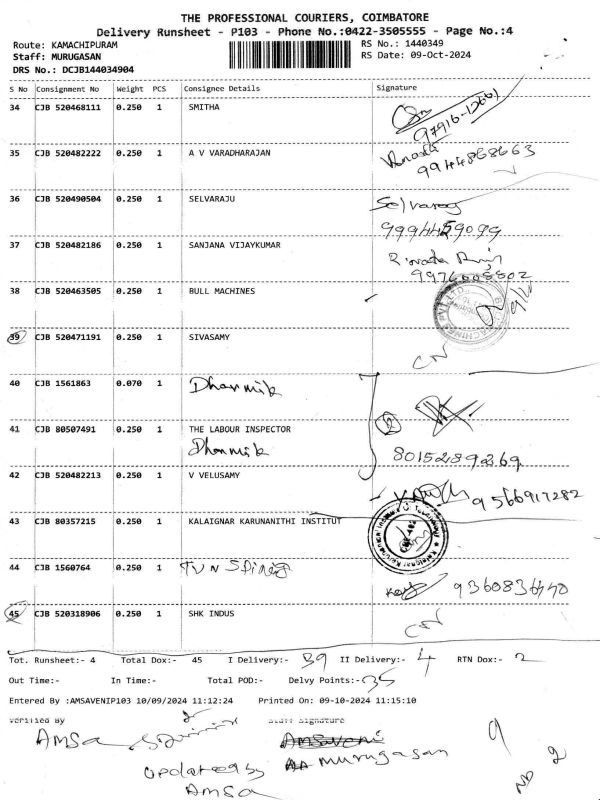 THE PROFESSIONAL COURIERS, COIMBATORE
Delivery Runsheet - P103 - Phone No.:0422-3505555 - Page No.:4
Route: KAMACHIPURAM RS No.: 1440349
Staff: MURUGASAN RS Date: 09-Oct-2024
DRS No.: DCJB144034904
S No Consignment No Weight PCS Consignee Details Signature
34 CJB 520468111 0.250 1 SMITHA
97916-12661
35 CJB 520482222 0.250 1 A V VARADHARAJAN
9944868663
36 CJB 520490504 0.250 1 SELVARAJU Selvaraj
9994459099
37 CJB 520482186 0.250 1 SANJANA VIJAYKUMAR
9976008802
38 CJB 520463505 0.250 1 BULL MACHINES
39 CJB 520471191 0.250 1 SIVASAMY
CN
40 CJB 1561863 0.070 1 Dharmik
41 CJB 80507491 0.250 1 THE LABOUR INSPECTOR 2
Dharmik 8015289269
42 CJB 520482213 0.250 1 V VELUSAMY 9566917282
43 CJB 80357215 0.250 1 KALAIGNAR KARUNANITHI INSTITUT
44 CJB 1560764 0.250 1 TVN Spring
9360836440
45 CJB 520318906 0.250 1 SHK INDUS
CN
Tot. Runsheet:- 4 Total Dox:- 45 I Delivery:- 39 II Delivery:- 4 RTN Dox:- 2
Out Time:- In Time:- Total POD:- Delvy Points:- 35
Entered By :AMSAVENIP103 10/09/2024 11:12:24 Printed On: 09-10-2024 11:15:10
Verified By Staff Signature
AMSa Amsaveni
Murugasan
updated by
AMSa
9
ND 2